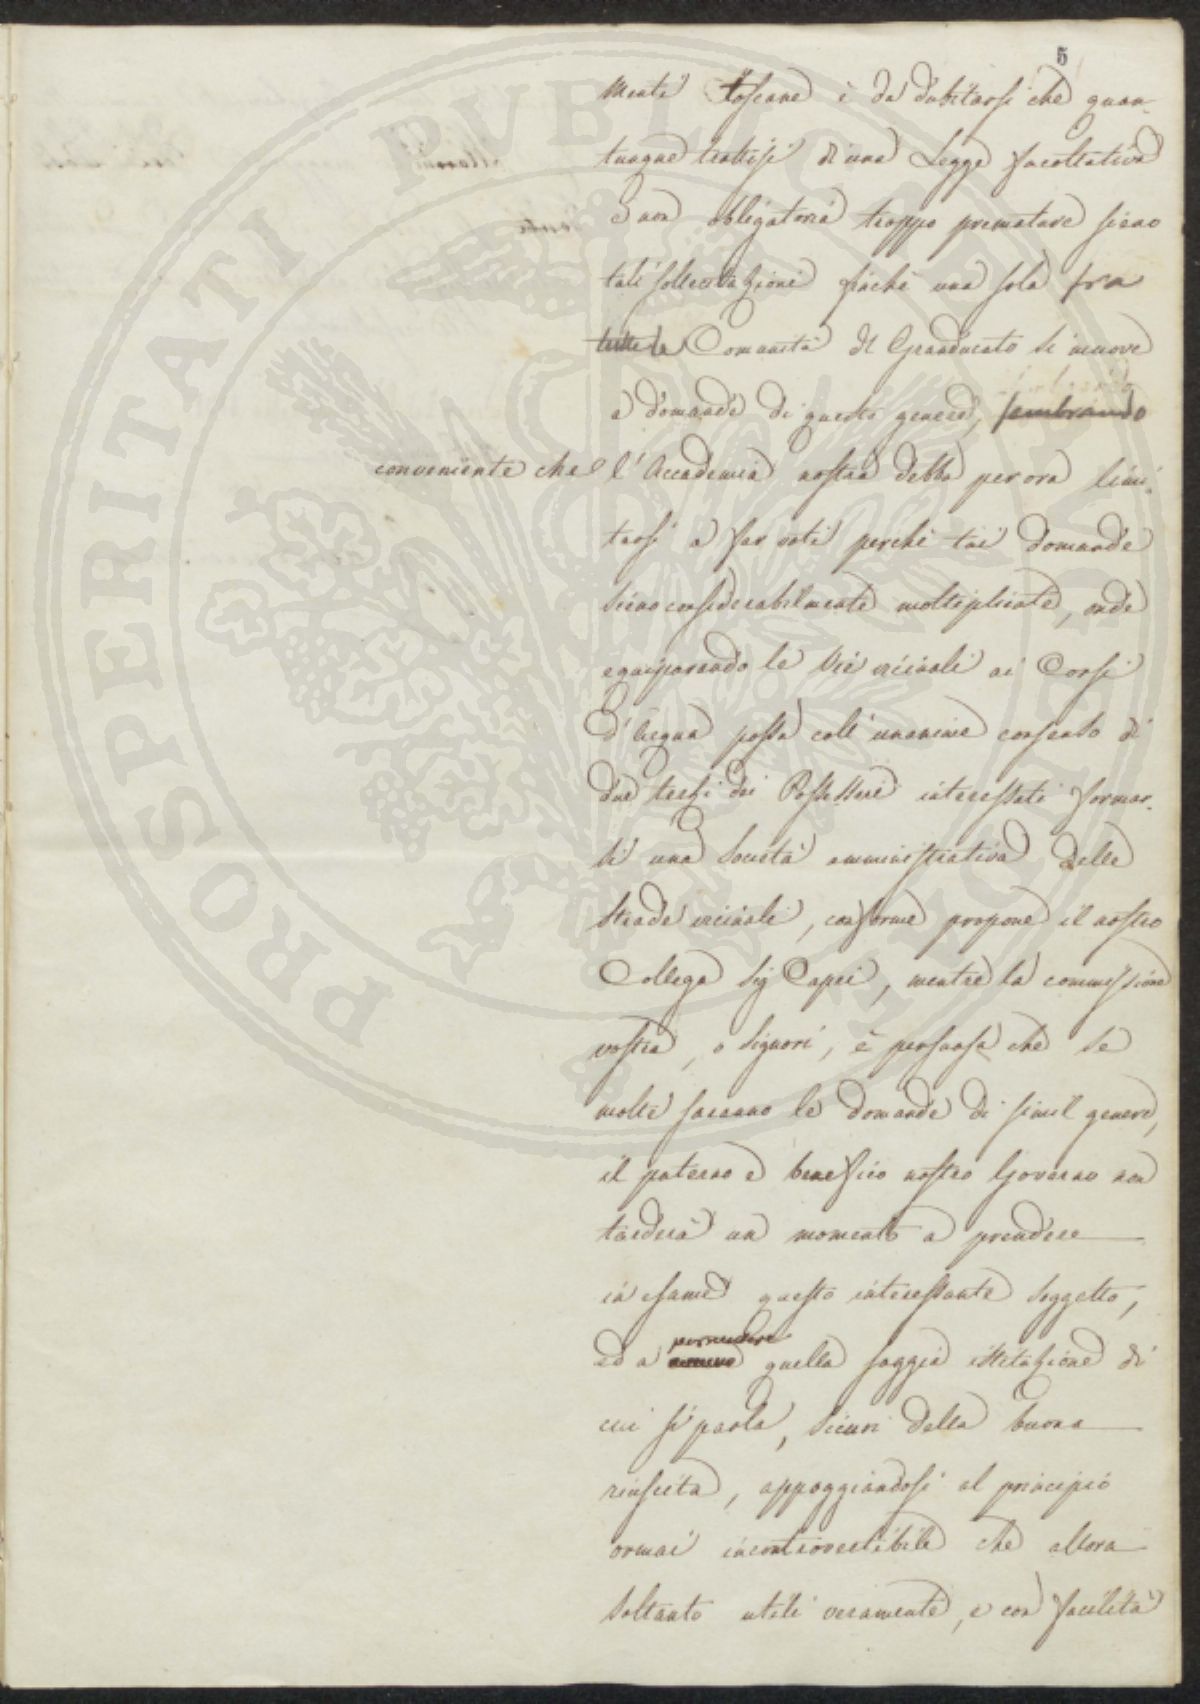 5
menti Toscane è da dubitarsi che quan-
tunque trattisi di una Legge facoltativa
e non obbligatoria troppo premature sieno
tali sollecitazioni finchè una sola fra
tutte le Comunità del Granducato si muove
a domande di questo genere, sembrando
conveniente che l'Accademia nostra debba per ora limi-
tarsi a far voti perchè tai domande
sieno considerabilmente moltiplicate, onde
equiparando le Vie vicinali ai Corsi
d'Acqua possa coll'unanime consenso di
due terzi dei Possessori interessati formar-
si una Società amministrativa delle
strade vicinali, conforme propone il nostro
Collega Sig Capei, mentre la commissione
vostra, o Signori, è persuasa che se
molte saranno le domande di simil genere,
il paterno e benefico nostro Governo non
tarderà un momento a prendere
in esame questo interessante soggetto,
permettere
ed a quella saggia istituzione di
cui si parla, sicuri della buona
riuscita, appoggiandosi al principio
ormai incontrovertibile che allora
soltanto utili veramente, e con facilità
PROSPERITATI PUBLICAE